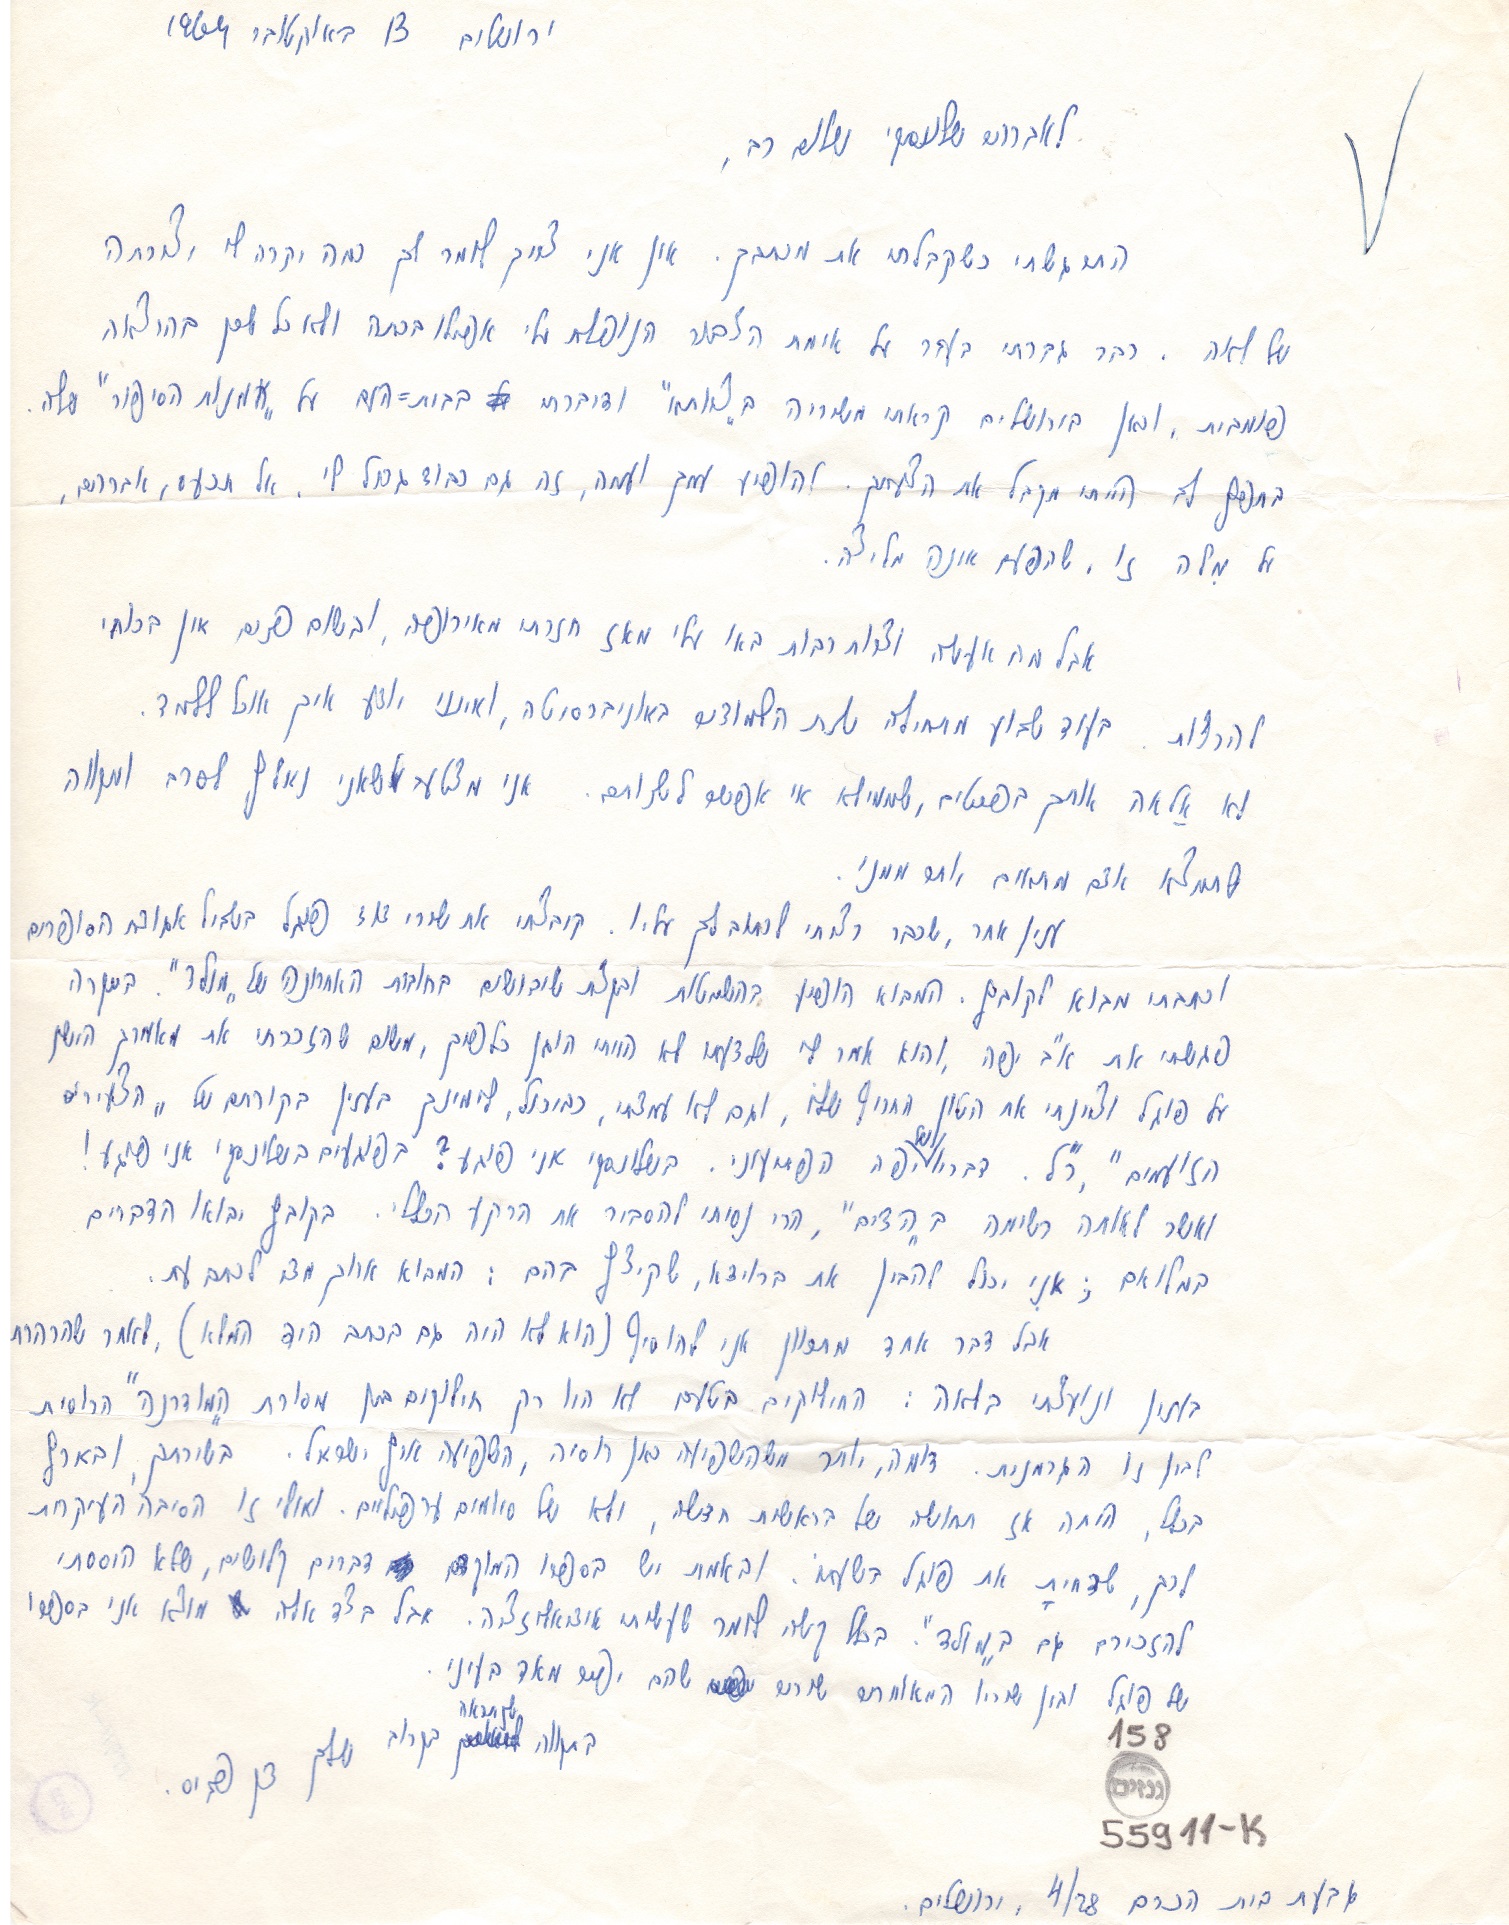 ירושלים 13 באוקטובר 1964
לאברהם שלונסקי שלום רב,
התרגשתי כשקבלתי את מכתבך. אין אני צריך לומר לך כמה יקרה לי יצירתה
של לאה. כבר גברתי בעבר על אימת הצבור הנופלת עלי אפילו בכתה ולא כל שכן בהרצאה
פומבית, וכאן בירושלים קראתי משיריה ב"צוותא" ודיברתי בבית-העם על "אמנות הסיפור" שלה.
בחפץ לב הייתי מקבל את הצעתך. להופיע עמך ועמה, זה גם כבוד גדול לי. אל תכעס, אברהם,
על מלה זו, שהפעם אינה מליצה.
אבל מה אעשה וצרות רבות באו עלי מאז חזרתי מאירופה, ובשום פנים אין בכוחי
להרצות. בעוד שבוע מתחילה שנת הלמודים באוניברסיטה, ואינני יודע איך אוכל ללמד.
לא אלאה אותך בפרטים, שממילא אי אפשר לשנותם. אני מצטער שאני נאלץ לסרב ומקווה
שתמצא אדם מתאים יותר ממני.
ענין אחר, שכבר רציתי לכתוב לך עליו. קיבצתי את שירי דוד פוגל בשביל אגודת הסופרים
וכתבתי מבוא לקובץ. המבוא הופיע בהשמטות ובקצת שיבושים בחוברת האחרונה של "מולד". במקרה
פגשתי את א"ב יפה, והוא אמר לי שלדעתו לא הייתי הוגן כלפיך, משום שהזכרתי את מאמרך הישן
על פוגל וציינתי את הטון החריף שלו, וגם לא עמדתי, כביכול, לימינך בענין בקורתם של "הצעירים
הזועמים", ר"ל. דבריו של יפה הפתיעוני. בשלונסקי אני פוגע? בפוגעים בשלונסקי אני פוגע!
ואשר לאותה רשימה ב"הדים", הרי נסיתי להסביר את הרקע הכללי. בקובץ יבואו הדברים
במלואם; אני יכול להבין את ברוידא, שקיצץ בהם: המבוא ארוך מדי לכתב עת.
אבל דבר אחד מתכוון אני להוסיף (הוא לא היה גם בכתב היד המלא), לאחר שהרהרתי
בענין ונועצתי בלאה: החילוקים בטעם לא היו רק חילוקים בין מסורת "המודרנה" הרוסית
לבין זו הגרמנית. דומה, יותר משהשפיעה כאן רוסיה, השפיעה ארץ ישראל. בשירתך, ובארץ
בכלל, היתה אז תחושה של בראשית חדשה, ולא של סיומים ערפיליים. ואולי זו הסיבה העיקרית
לכך, שדחית את פוגל בשעתו. ובאמת יש בספרו המוקדם דברים קלושים, שלא היססתי
להזכירם גם ב"מולד". בכלל קשה לומר שעשיתי אידאליזציה. אבל בצד אלה מוצא אני בספרו
של פוגל ובין שיריו המאוחרים שורות שהם יפים מאד בעיני.
בתקווה שנתראה בקרוב שלך דן פגיס.
158
גנזים
55911-K
גבעת בית הכרם 4/28, ירושלים.